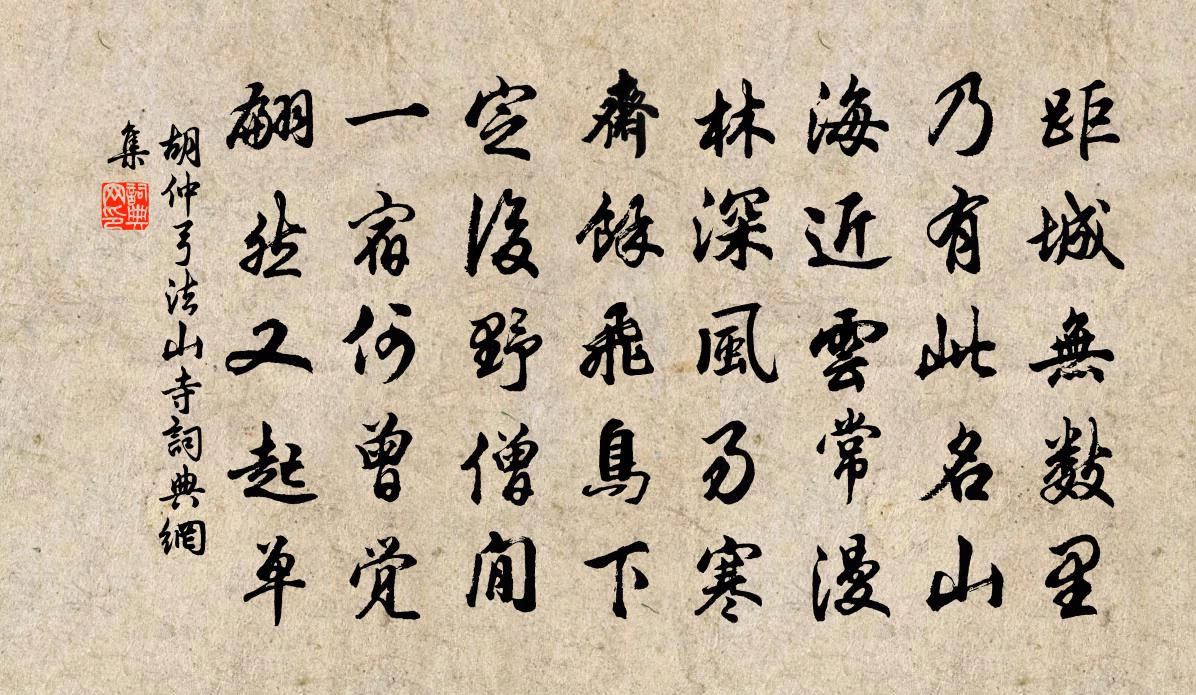 距城無數里
乃有此名山
海近雲常漫
林深風易寒
齋餘飛鳥下
定後野僧閒
一宿何曾覺
翩然又起單
胡仲弓法山寺詞典網
集
詞典網印